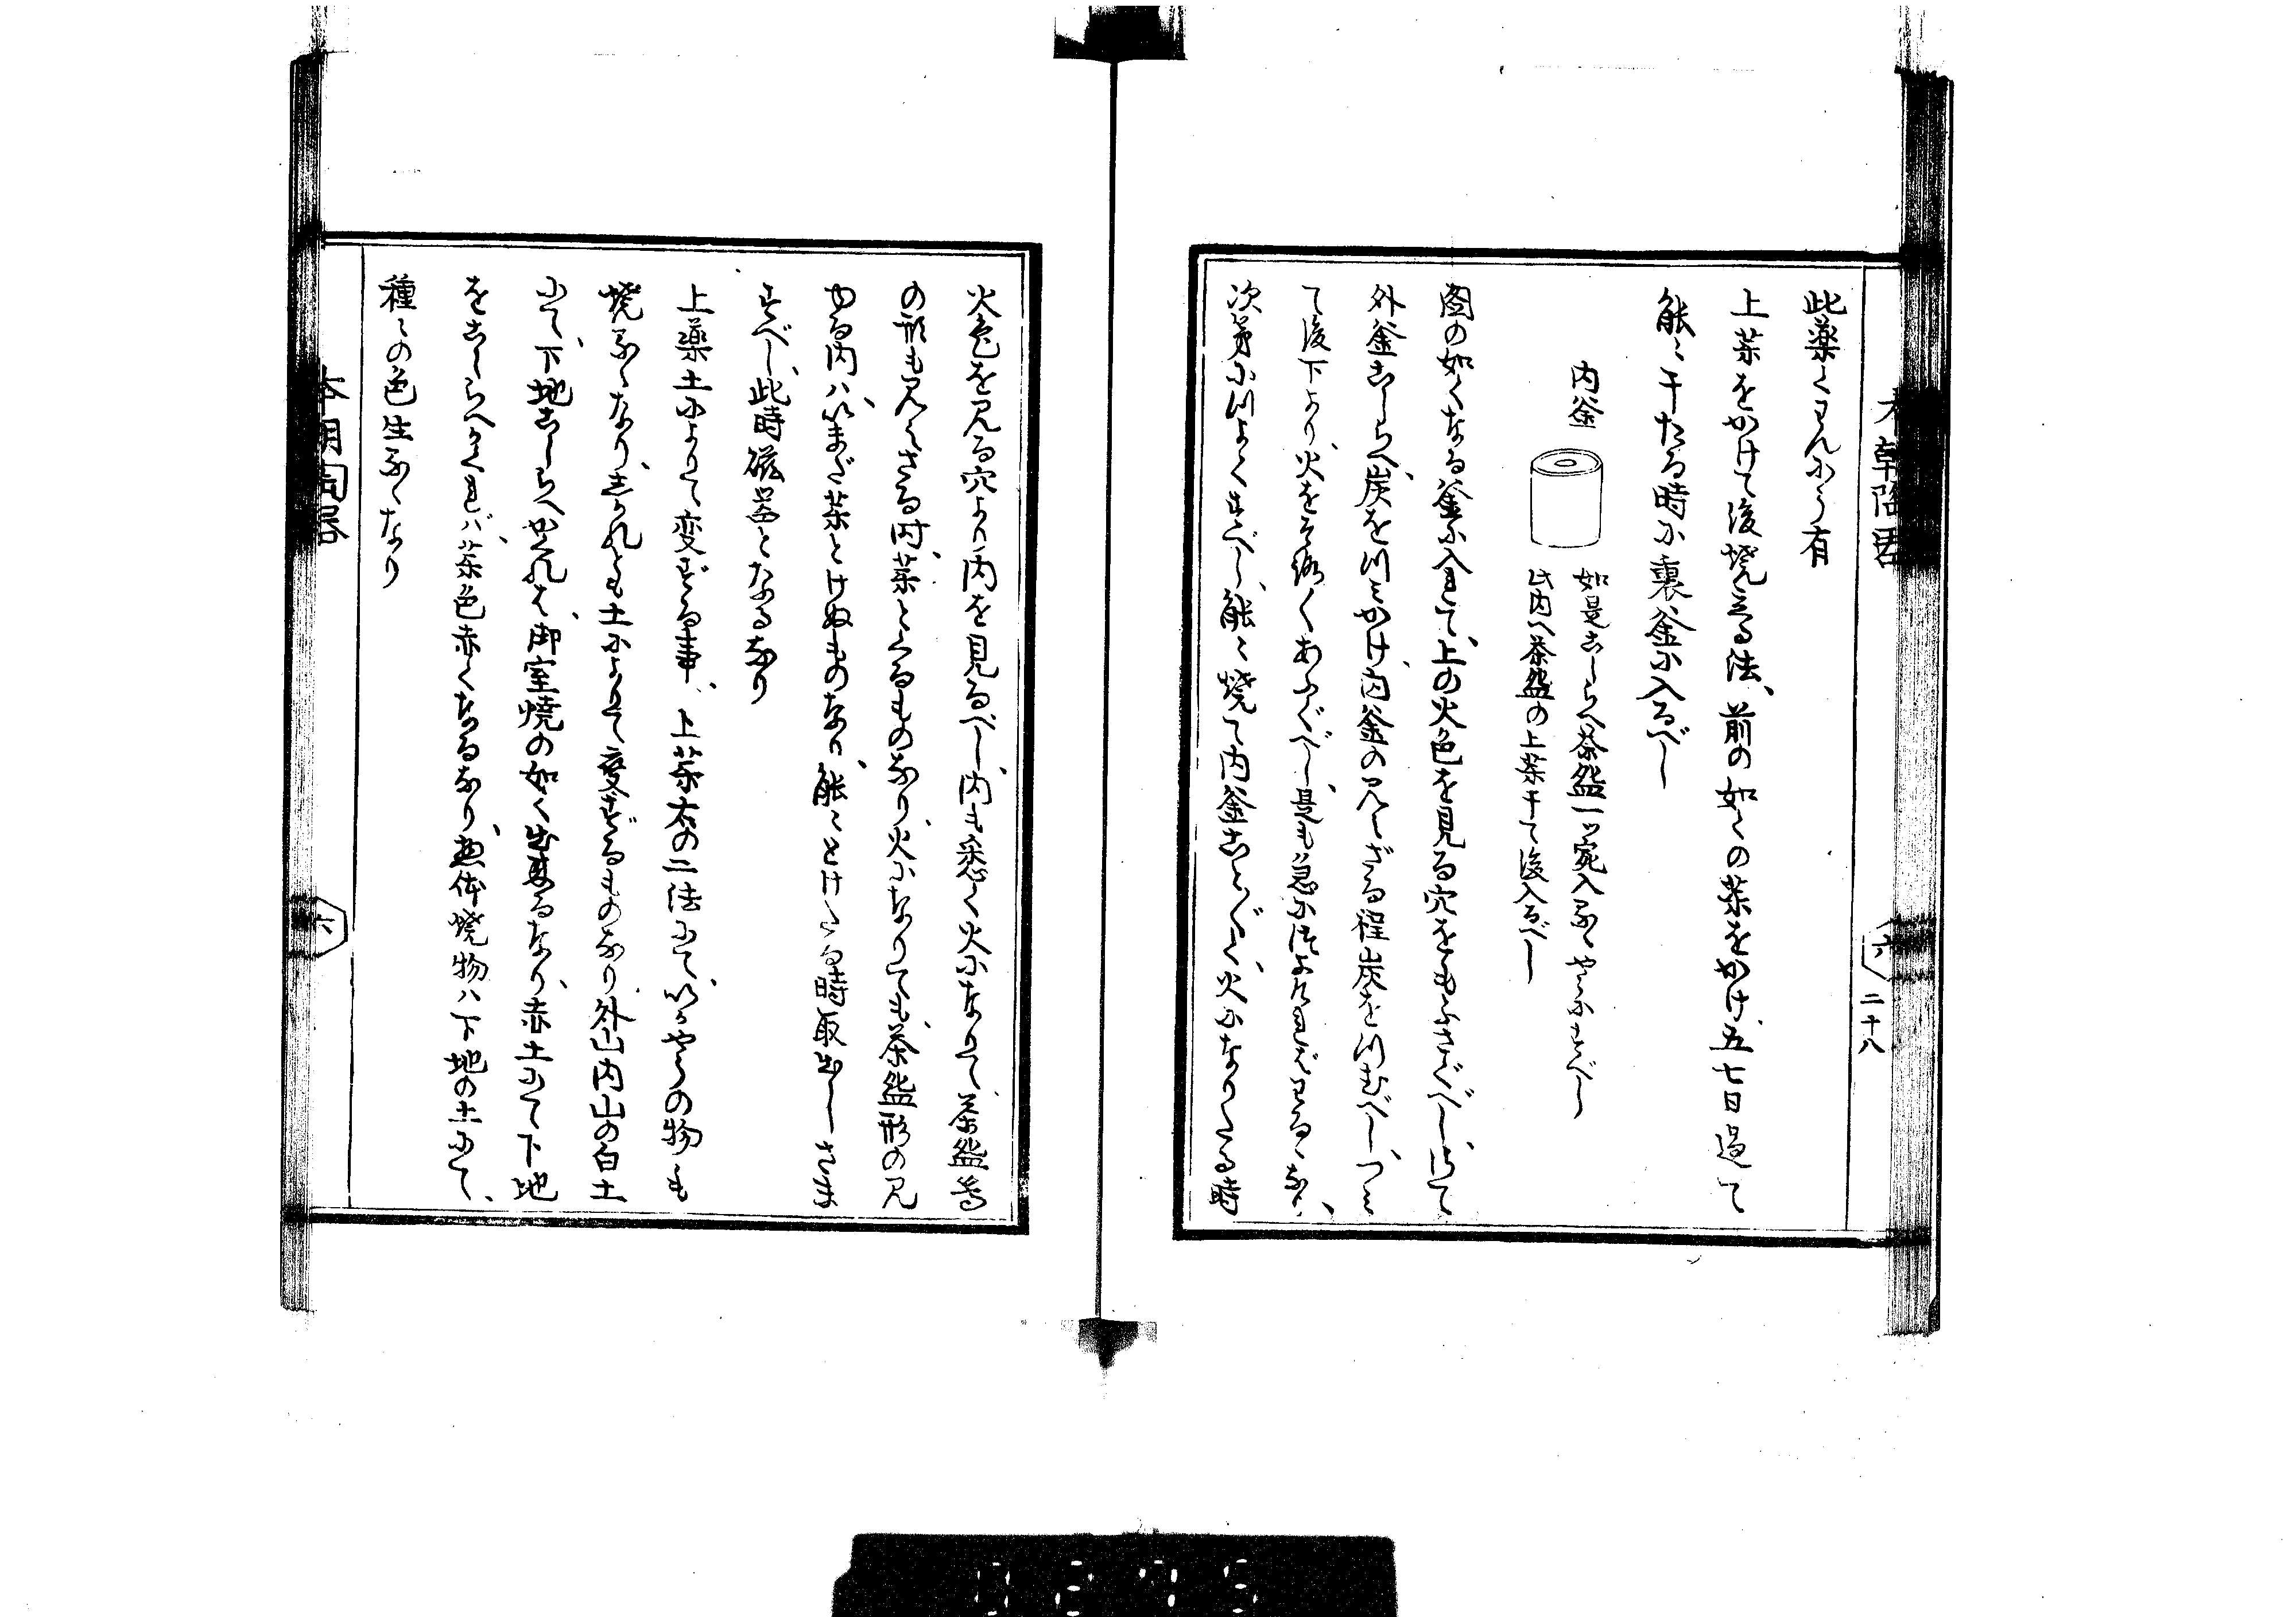 此薬くわんにう有
上薬をかけて後焼立る法、前の如くの薬をかけ、五七日過て
能〻干たる時に裏釜に入るべし
内釜
如是こしらへ茶盌一ツ宛入るゝやうにすべし
此内へ茶盌の上薬干て後入るべし
図の如くなる釜に入れて、上の火色を見る穴をもふさぐべし、さて
外釜こしらへ、炭を川ミかけ、内釜の見へざる程炭を川むべし、つミ
て後下より、火をそ
くあふぐべし、是も急に
われるゝなり、
次第に川よくすべし、能〻焼て内釜ことごとく、火になりたる時
火色を見る穴より内を見るべし、内も悉く火になりて、茶盌等
の形も見へざる内、薬とくるものなり、火になりても、茶盌形の見
ゆる内ハ、いまだ薬とけぬものなり、能〻とけたる時取出しさま
すべし、此時磁器となるなり
上薬土によりて変ずる事、上薬右の二法にて、いかやうの物も
焼るゝなり、されども土によりて変ずるものなり、外山内山の白土
にて、下地こしらへかくれば、御室焼の如く出来るなり、赤土にて下地
をこしらへかくれバ、薬色赤くなるなり、惣体焼物ハ下地の土にて、
種〻の色生るゝなり
六
二十八
六